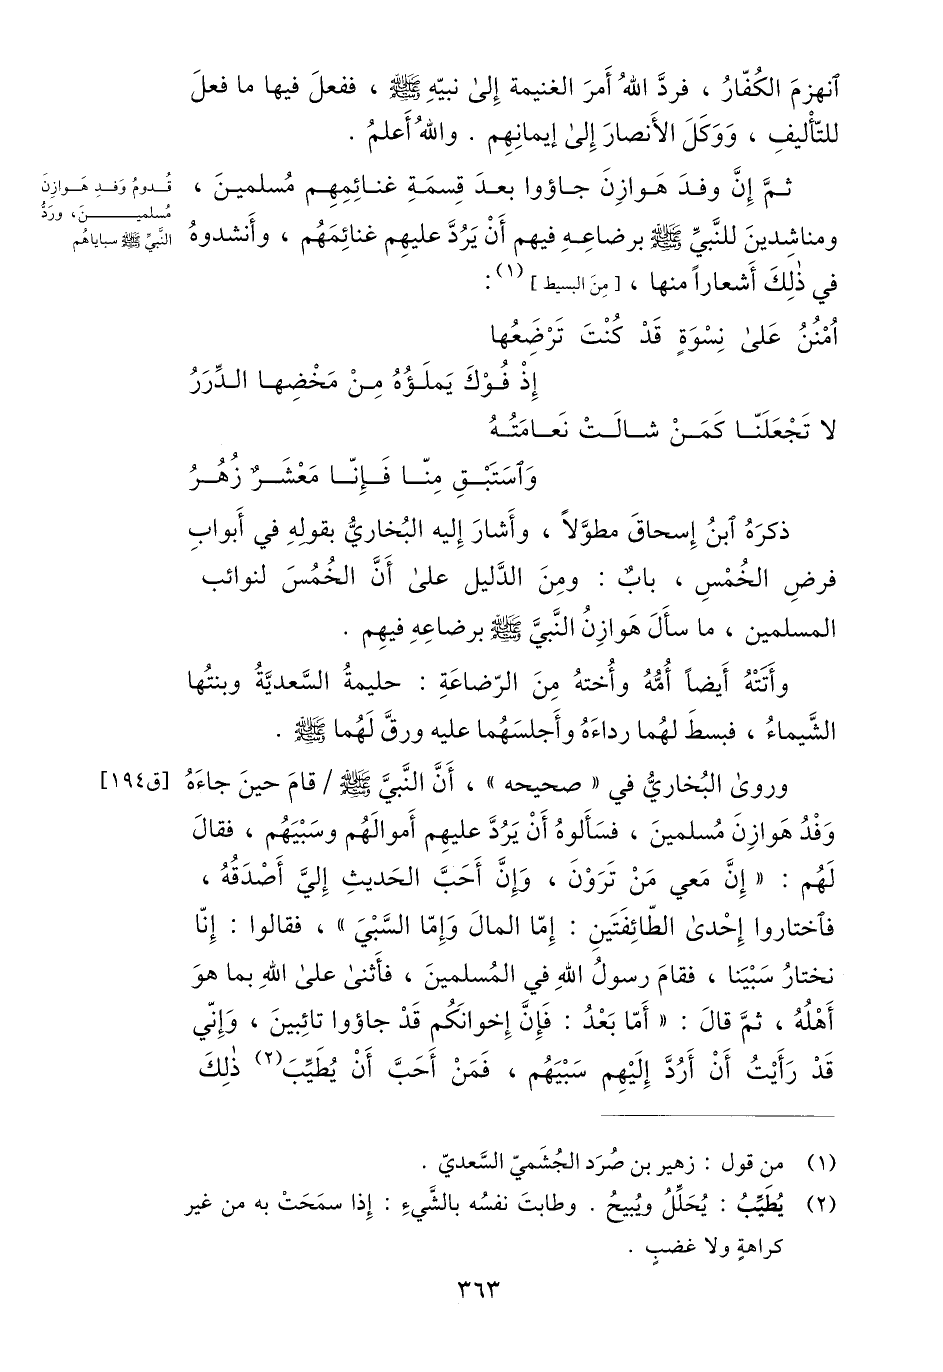 ٱنهزمَ الكُفّارُ ، فردَّ اللهُ أَمرَ الغنيمة إِلىٰ نبيّهِ ﷺ ، ففعلَ فيها ما فعلَ
للتّأْليفِ ، وَوَكَلَ الأَنصارَ إِلىٰ إيمانِهم . واللهُ أَعلمُ .
ثمَّ إِنَّ وفدَ هَوازِنَ جاؤوا بعدَ قِسمَةِ غنائِمِهم مُسلمينَ ،
قُدومُ وَفدِ هَوازِنَ
مُسلمينَ، وردُّ
النَّبيِّ ﷺ سباياهُم
ومناشدينَ للنَّبيِّ ﷺ برضاعِهِ فيهم أَنْ يَرُدَّ عليهم غنائِمَهُم ، وأَنشدوهُ
في ذٰلِكَ أَشعاراً منها ، [ مِنَ البسيط ] (١) :
اُمْنُنُ عَلىٰ نِسْوَةٍ قَدْ كُنْتَ تَرْضَعُها
إِذْ فُوْكَ يَملَؤُهُ مِنْ مَخْضِها الدِّرَرُ
لا تَجْعَلَنّا كَمَنْ شالَتْ نَعامَتُهُ
وَٱستَبْقِ مِنّا فَإِنّا مَعْشَرٌ زُهُرُ
ذكرَهُ ٱبنُ إِسحاقَ مطوَّلاً ، وأَشارَ إِليه البُخاريُّ بقولِهِ في أَبوابِ
فرضِ الخُمْسِ ، بابٌ : ومِنَ الدَّليل علىٰ أَنَّ الخُمُسَ لنوائب
المسلمين ، ما سأَلَ هَوازِنُ النَّبيَّ ﷺ برضاعِهِ فيهم .
وأَتَتْهُ أَيضاً أُمُّهُ وأُختهُ مِنَ الرّضاعَةِ : حليمةُ السَّعديَّةُ وبنتُها
الشَّيماءُ ، فبسطَ لهُما رداءَهُ وأَجلسَهُما عليه ورقَّ لَهُما ﷺ .
وروىٰ البُخاريُّ في « صحيحه » ، أَنَّ النَّبيَّ ﷺ / قامَ حينَ جاءَهُ [ق١٩٤]
وَفْدُ هَوازِنَ مُسلمينَ ، فسَأَلوهُ أَنْ يَرُدَّ عليهِم أَموالَهُم وسَبْيَهُم ، فقالَ
لَهُم : « إِنَّ مَعي مَنْ تَرَوْنَ ، وَإِنَّ أَحَبَّ الحَديثِ إِليَّ أَصْدَقُهُ ،
فٱختاروا إِحْدىٰ الطّائِفَتَينِ : إِمّا المالَ وَإِمّا السَّبْيَ » ، فقالوا : إِنّا
نختارُ سَبْيَنا ، فقامَ رسولُ اللهِ في المُسلمينَ ، فأَثنىٰ علىٰ اللهِ بما هوَ
أَهْلُهُ ، ثمَّ قالَ : « أَمّا بَعْدُ : فَإِنَّ إِخوانَكُم قَدْ جاؤوا تائِبينَ ، وَإِنّي
قَدْ رَأَيْتُ أَنْ أَرُدَّ إِلَيْهِم سَبْيَهُم ، فَمَنْ أَحَبَّ أَنْ يُطَيِّبَ(٢) ذٰلِكَ
(١) من قول : زهير بن صُرَد الجُشَميّ السَّعديّ .
(٢) يُطَيِّبُ : يُحَلِّلُ ويُبيحُ . وطابتَ نفسُه بالشَّيءِ : إِذا سمَحَتْ به من غير
كراهةٍ ولا غضبٍ .
٣٦٣